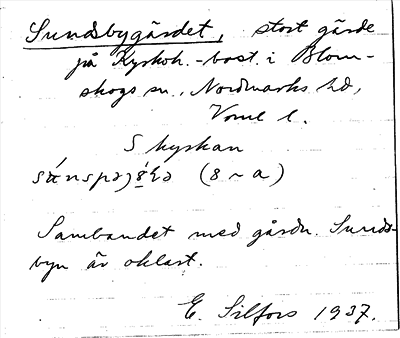 Sundsbygärdet, stort gärde
på Kyrkoh.-bost. i Blom-
skogs sn., Nordmarks hd,
Vrml l.
S kyrkan
(8 ~ a)
Sambandet med gårdn. Sunds-
byn är oklart.
E. Silfors 1937.